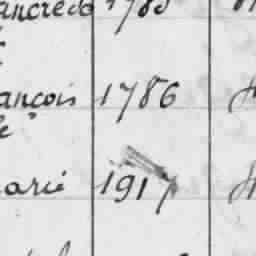 ancredo 1785
ançois 1786
le
arie 1917